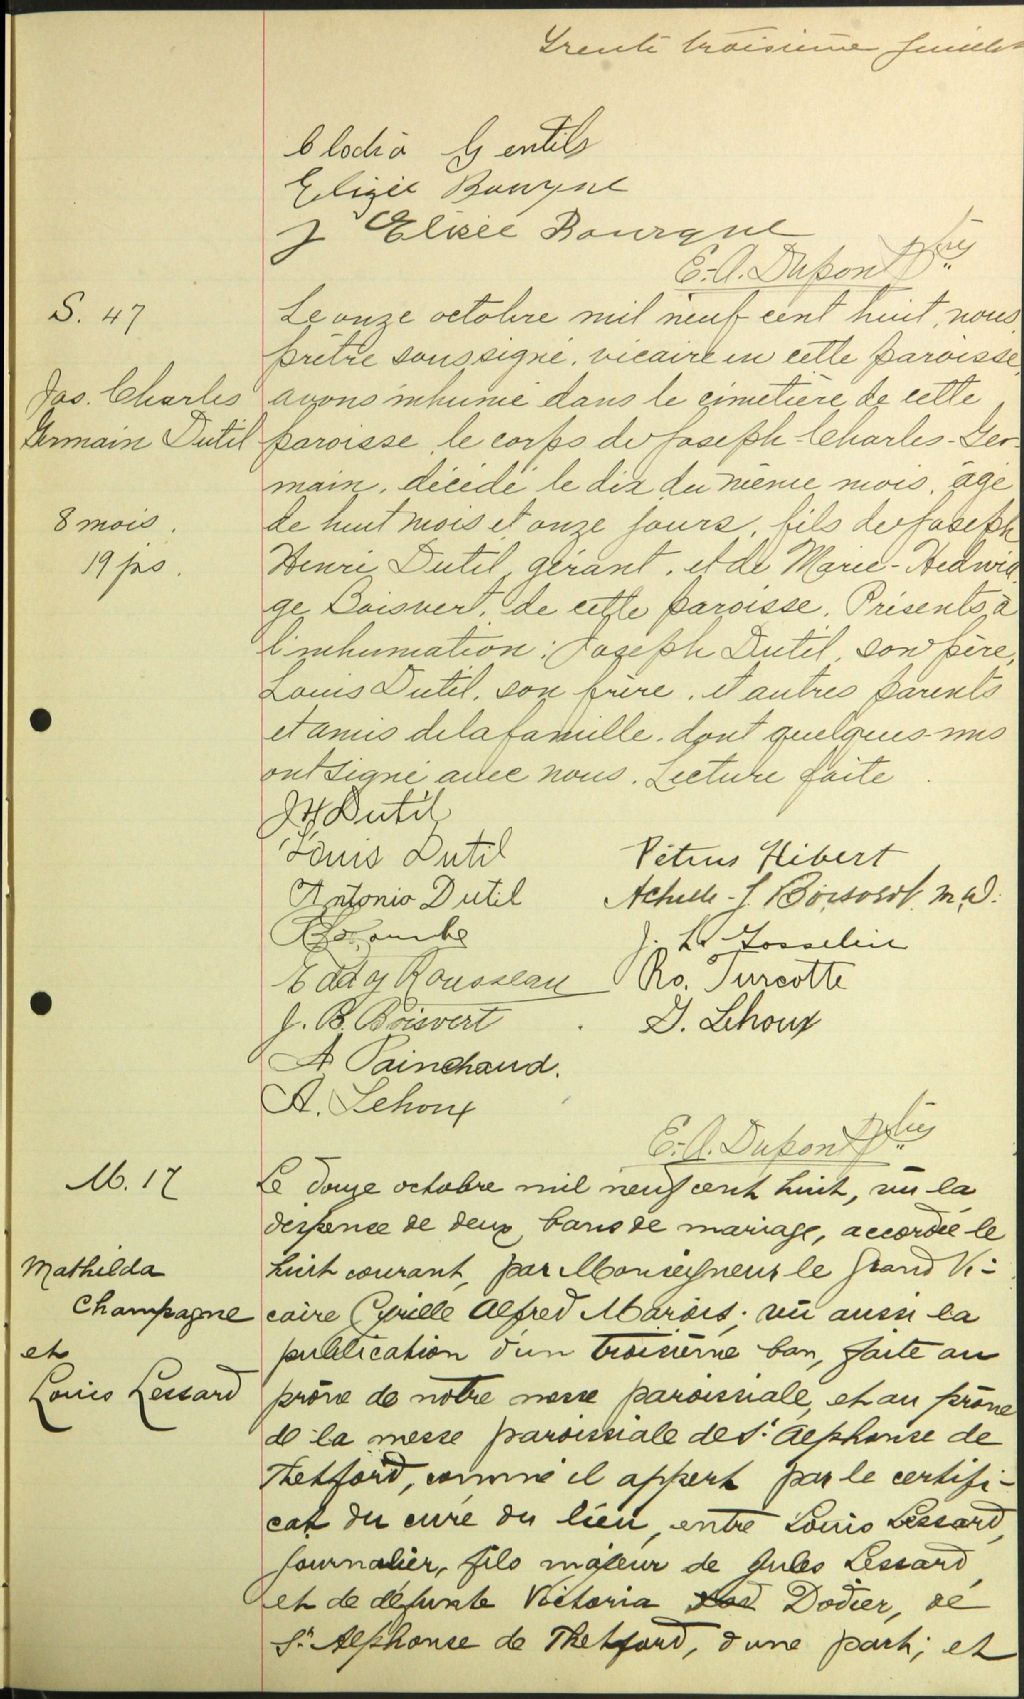 Trente troisième feuillet
Clodia Gentils
Elizée Bourque
J Elisée Bourque
E.-A. Dupont Ptre
S. 47
Jos. Charles
Germain Dutil
8 mois.
19 jrs.
Le onze octobre mil neuf cent huit, nous,
prêtre soussigné, vicaire en cette paroisse,
avons inhumé dans le cimetière de cette
paroisse le corps de Joseph-Charles-Ger-
main, décédé le dix du même mois, âgé
de huit mois et onze jours, fils de Joseph
Henri Dutil, gérant, et de Marie-Hedwid-
ge Boisvert, de cette paroisse. Présents à
l'inhumation: Joseph Dutil, son père,
Louis Dutil, son frère, et autres parents
et amis de la famille dont quelques-uns
ont signé avec nous. Lecture faite.
JH Dutil
Louis Dutil
Pétrus Hibert
Antonio Dutil
Achille-J. Boisvert M.D.
J. L. Gosselin
Eddy Rousseau
Ro. Turcotte
J. B. Boisvert
G. Lehoux
A Painchaud.
A. Lehoux
E.-A. Dupont Ptre
M. 17
Mathilda
Champagne
et
Louis Lessard
Le douze octobre mil neuf cent huit, vu la
dispense de deux bans de mariage, accordée le
huit courant, par Monseigneur le Grand Vi-
caire Cyrille Alfred Marois; vu aussi la
publication d'un troisième ban, faite au
prône de notre messe paroissiale, et au prône
de la messe paroissiale de St Alphonse de
Thetford, comme il appert par le certifi-
cat du curé du lieu, entre Louis Lessard,
journalier, fils majeur de Jules Lessard,
et de défunte Victoria Dodier, de
St Alphonse de Thetford, d'une part; et